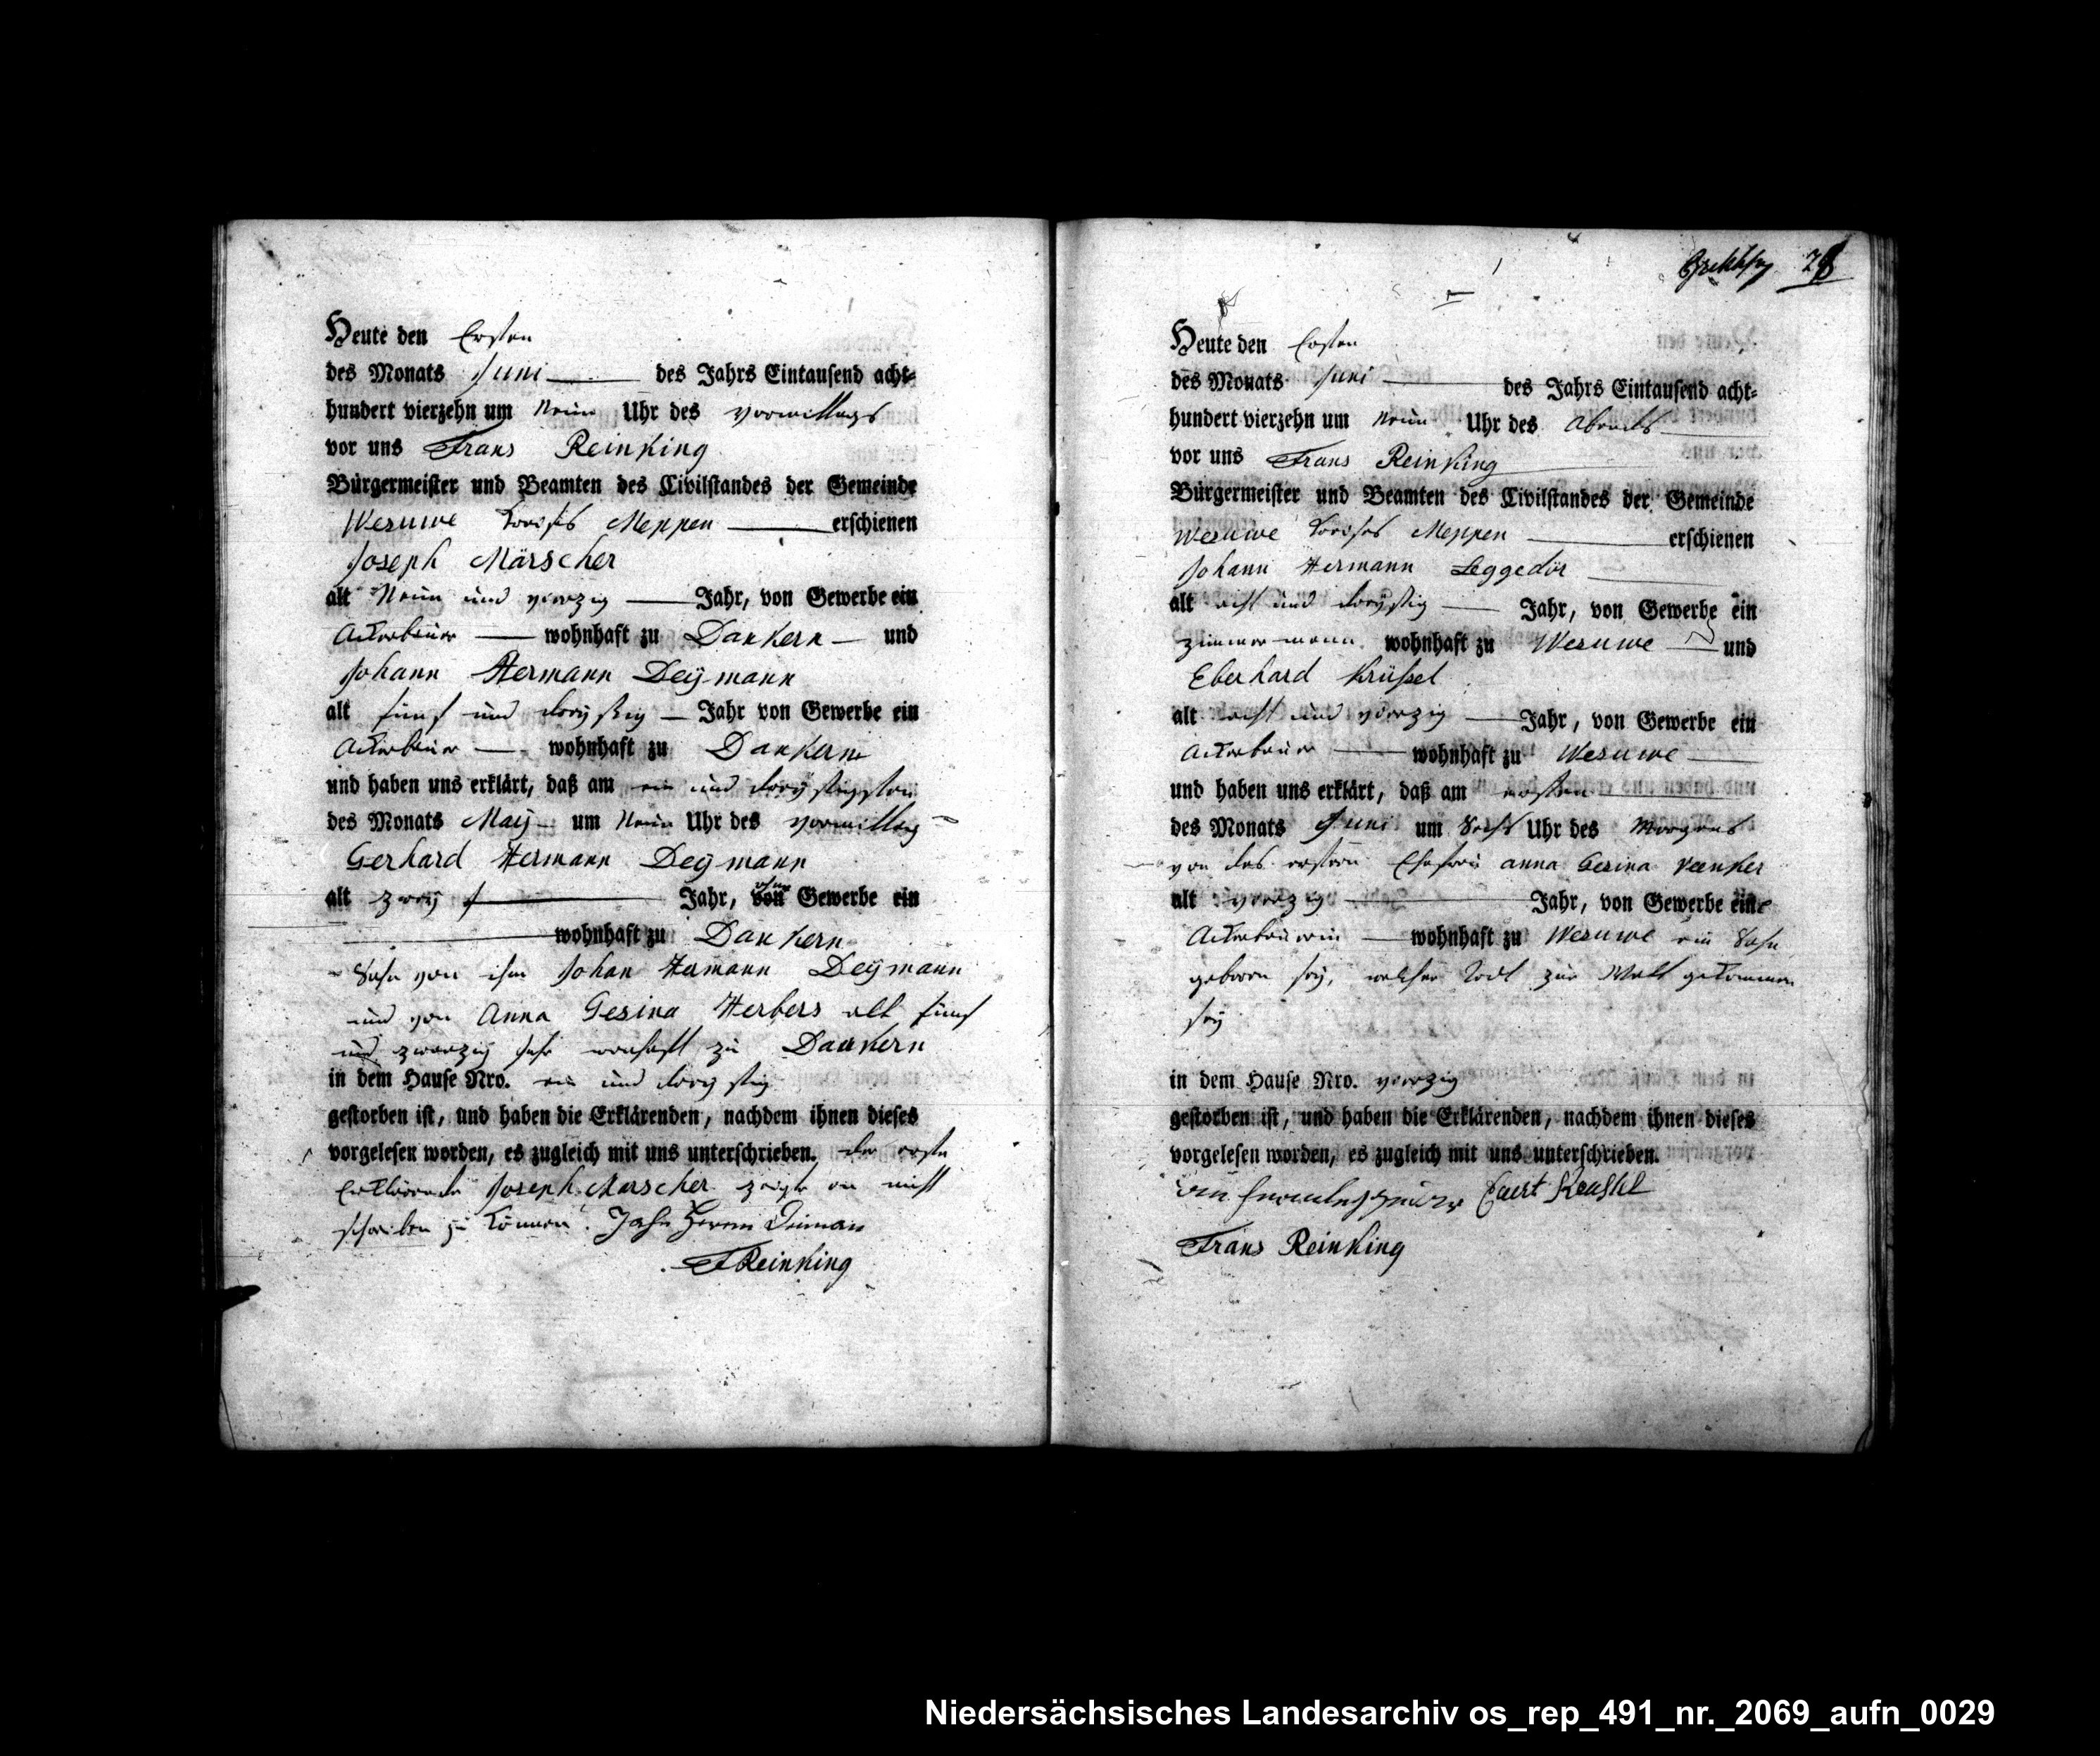 Heute den Ersten
des Monats Juni des Jahrs Eintausend acht-
hundert vierzehn um Neun Uhr des vormittags
vor uns Frans Reinking
Bürgermeister und Beamten des Civilstandes der Gemeinde
Wesuwe Kreises Meppen erschienen
Joseph Märscher
alt Neun und vierzig Jahr, von Gewerbe ein
Ackerbauer wohnhaft zu Dankern und
Johann Hermann Deÿmann
alt fünf und dreÿßig Jahr von Gewerbe ein
Ackerbauer wohnhaft zu Dankern
und haben uns erklärt, daß am ein und dreÿßigsten
des Monats Maÿ um Neun Uhr des vormittag
Gerhard Hermann Deÿmann
alt zweÿ Jahr, ohne von Gewerbe ein
wohnhaft zu Dankern
Sohn von ihm Johan Hermann Deÿmann
und von Anna Gesina Herbers alt fünf
und zwanzig Jahr wonhaft zu Dankern
in dem Hause Nro. ein und dreÿßig
gestorben ist, und haben die Erklärenden, nachdem ihnen dieses
vorgelesen worden, es zugleich mit uns unterschrieben. der erste
Erklärende Joseph Marscher zeigte an nicht
schreiben zu können. Jahn Herm Deiman
FReinking
28
Heute den Ersten
des Monats Juni des Jahrs Eintausend acht-
hundert vierzehn um Neun Uhr des Abends
vor uns Frans Reinking
Bürgermeister und Beamten des Civilstandes der Gemeinde
Wesuwe Kreises Meppen erschienen
Johann Hermann Leggedör
alt acht und dreÿßig Jahr, von Gewerbe ein
Zimmermann wohnhaft zu Wesuwe und
Eberhard Krüßel
alt acht und vierzig Jahr, von Gewerbe ein
Ackerbauer wohnhaft zu Wesuwe
und haben uns erklärt, daß am ersten
des Monats Juni um Sechs Uhr des Morgens
von des ersten Ehefrau Anna Gesina Veenker
alt vierzig Jahr, von Gewerbe eine
Ackerbauerin wohnhaft zu Wesuwe ein Sohn
geboren seÿ, welcher Todt zur Welt gekommen
seÿ
in dem Hause Nro. vierzig
gestorben ist, und haben die Erklärenden, nachdem ihnen dieses
vorgelesen worden, es zugleich mit uns unterschrieben.
Evert
Frans Reinking
Niedersächsisches Landesarchiv os_rep_491_nr._2069_aufn_0029